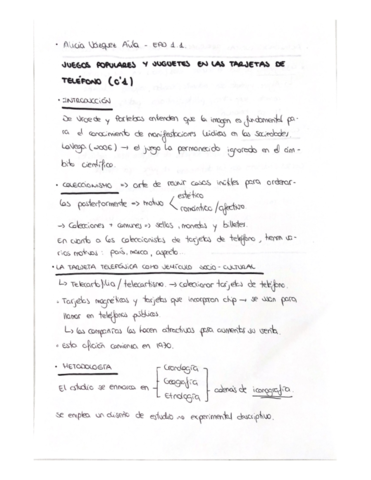 · Alicia Vázquez Ávila - EPO 1.1.
JUEGOS POPULARES Y JUGUETES EN LAS TARJETAS DE
TELÉFONO (0'1)
· INTRODUCCIÓN
De Verede y Portelas entienden que la imagen es fundamental pa-
ra el conocimiento de manifestaciones lúdicas en las sociedades.
Lavega (2006) → el juego ha permanecido ignorado en el ám-
bito científico.
· COLECCIONISMO => arte de reunir cosas inútiles para ordenar-
las posteriormente → motivo < estético
romántico / afectivo.
→ Colecciones + comunes => sellos, monedas y billetes.
En cuanto a los coleccionistas de tarjetas de teléfono, tienen va-
rios motivos: país, marca, aspecto...
· LA TARJETA TELEFÓNICA COMO VEHÍCULO SOCIO-CULTURAL
↳ Telecartofilia / telecartismo. → coleccionar tarjetas de teléfono.
· Tarjetas magnéticas y tarjetas que incorporan chip → se usan para
llamar en teléfonos públicos.
↳ las compañías las hacen atractivas para aumentar su venta.
· Esta afición comienza en 1970.
· METODOLOGÍA
El estudio se enmarca en - [ Cronología
Geografía
Etnología ] además de iconografía.
Se emplea un diseño de estudio no experimental descriptivo.